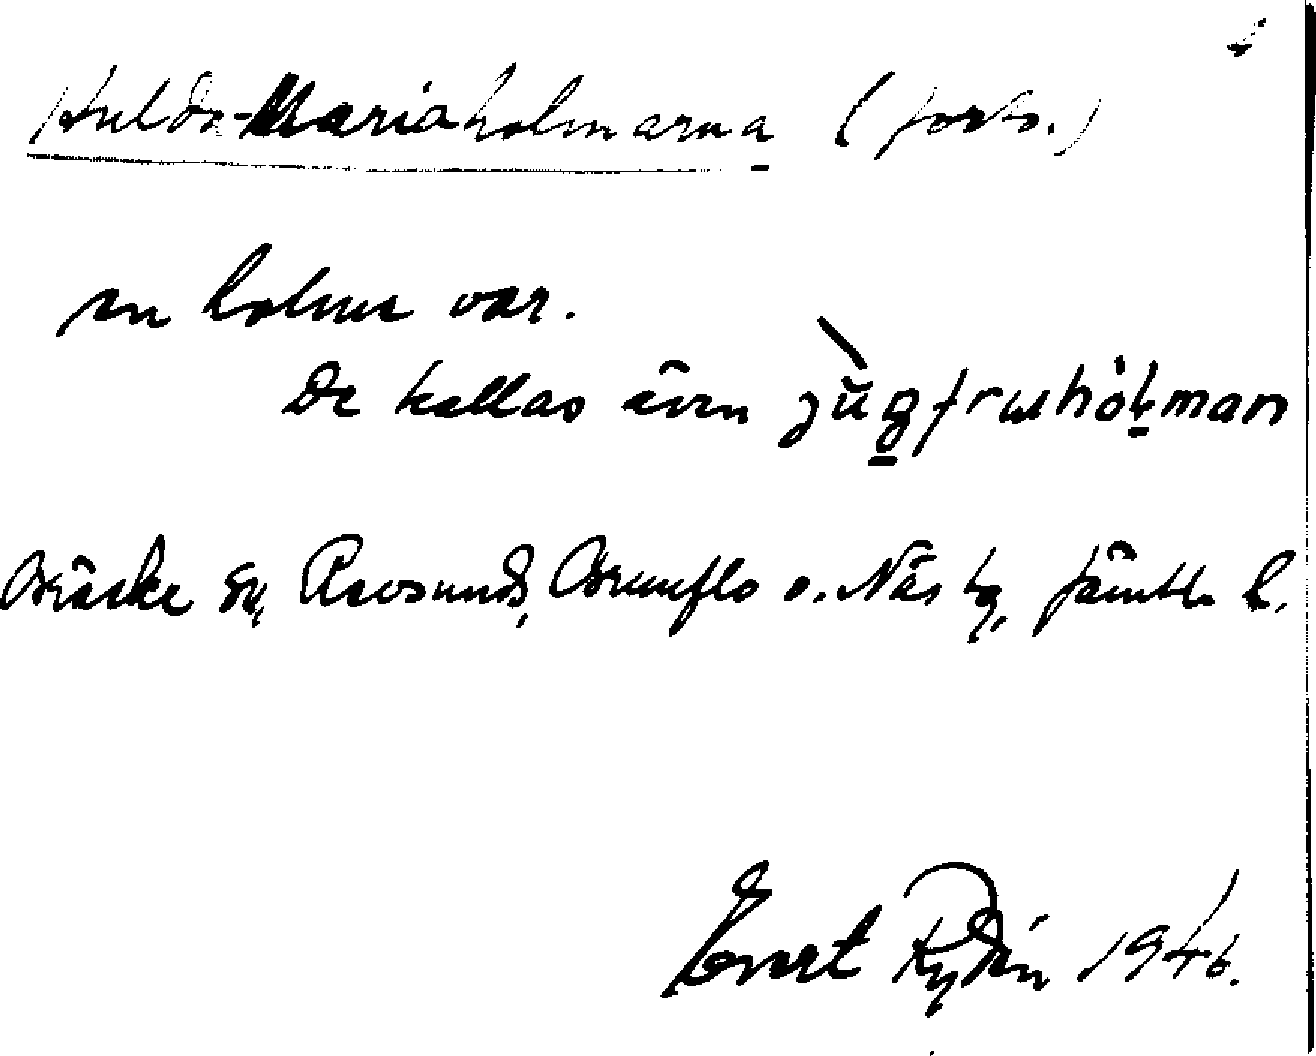 Hulda-Mariaholmarna (forts.)
en holme var.
De kallas även jùg̱fruhòḻman
Bräcke sn, Revsunds, Brunflo o. Näs tg, Jämtl. l.
Evert Rydin 1946.